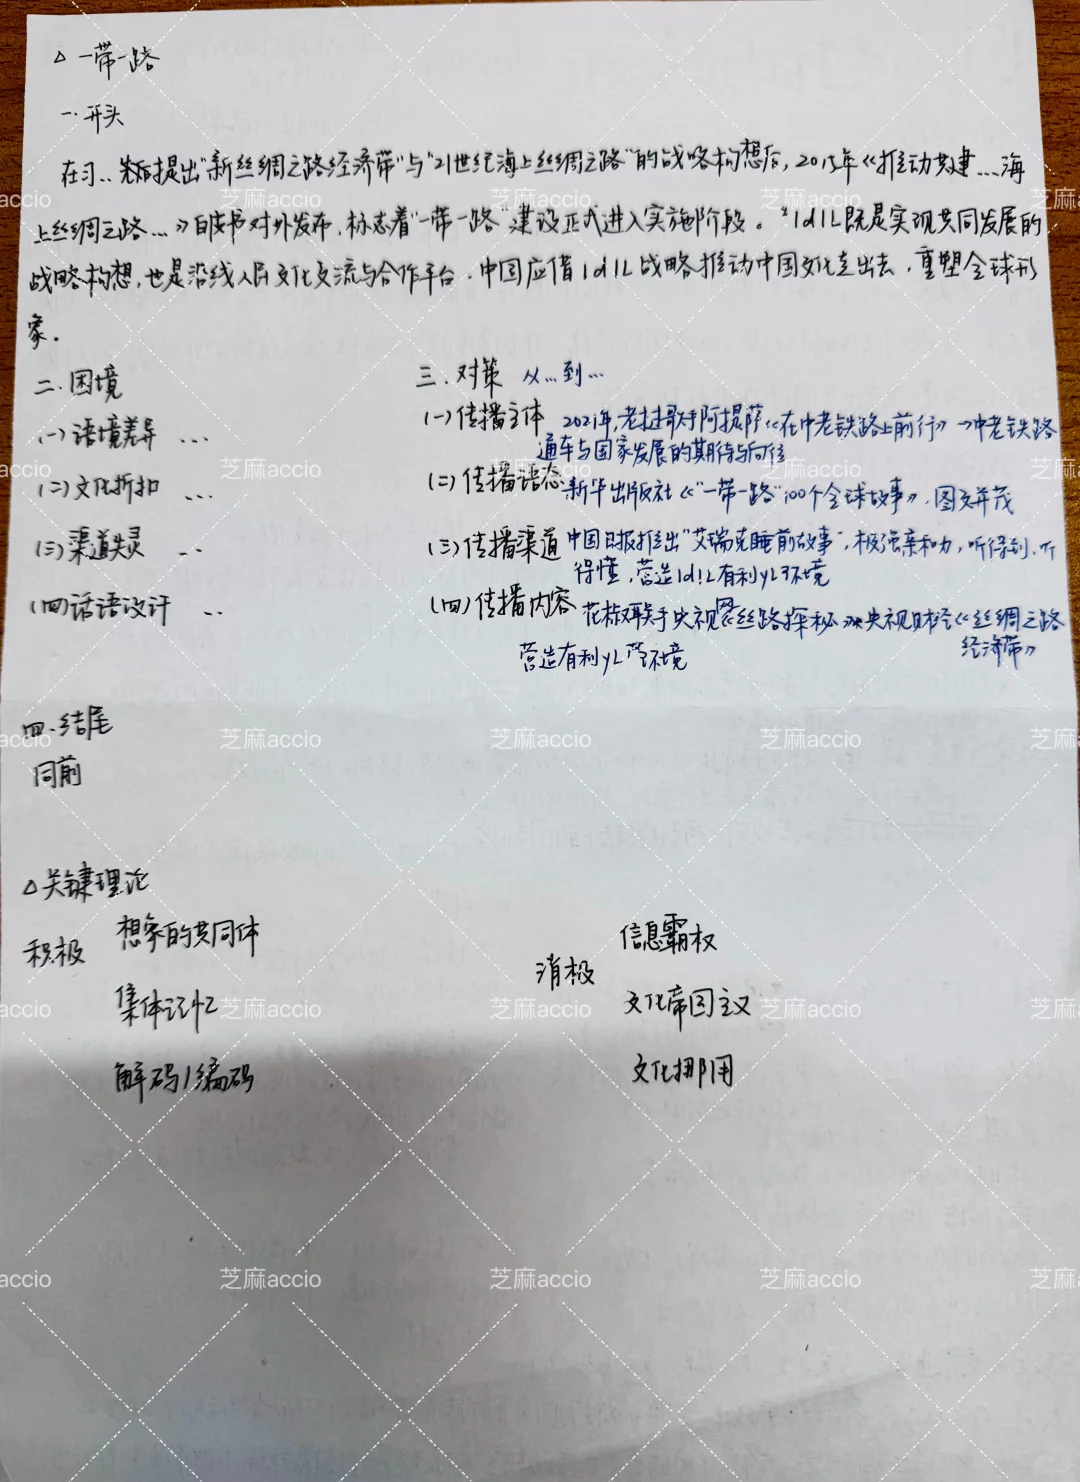 △ 一带一路
一. 开头
在习.. 先后提出"新丝绸之路经济带"与"21世纪海上丝绸之路"的战略构想后, 2015年《推动共建...海
上丝绸之路...》白皮书对外发布, 标志着"一带一路"建设正式进入实施阶段。1d1L既是实现共同发展的
战略构想, 也是沿线人民文化交流与合作平台. 中国应借1d1L战略推动中国文化走出去, 重塑全球形
象。
二. 困境
(一) 语境差异 ...
(二) 文化折扣 ...
(三) 渠道失灵 ...
(四) 话语设计 ..
三. 对策 从...到...
(一) 传播主体 2021年, 老挝歌手阿提萨《在中老铁路上前行》→中老铁路
通车与国家发展的期待与向往
(二) 传播语态 新华出版社《"一带一路"100个全球故事》, 图文并茂
(三) 传播渠道 中国日报推出"艾瑞克睡前故事", 极强亲和力, 听得到、听
得懂, 营造1d1L有利yL环境
(四) 传播内容 花椒联手央视网《丝路探秘》 央视财经《丝绸之路
经济带》
营造有利yL环境
四. 结尾
同前
△关键理论
积极 想象的共同体
集体记忆
解码/编码
消极 信息霸权
文化帝国主义
文化挪用
芝麻accio